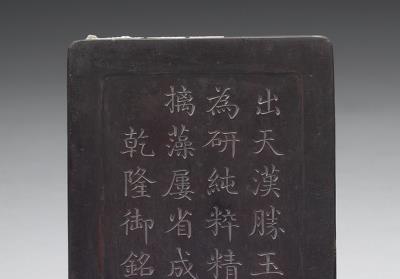 出天漢勝玉
為研純粹精
摛藻屢省成
乾隆御銘